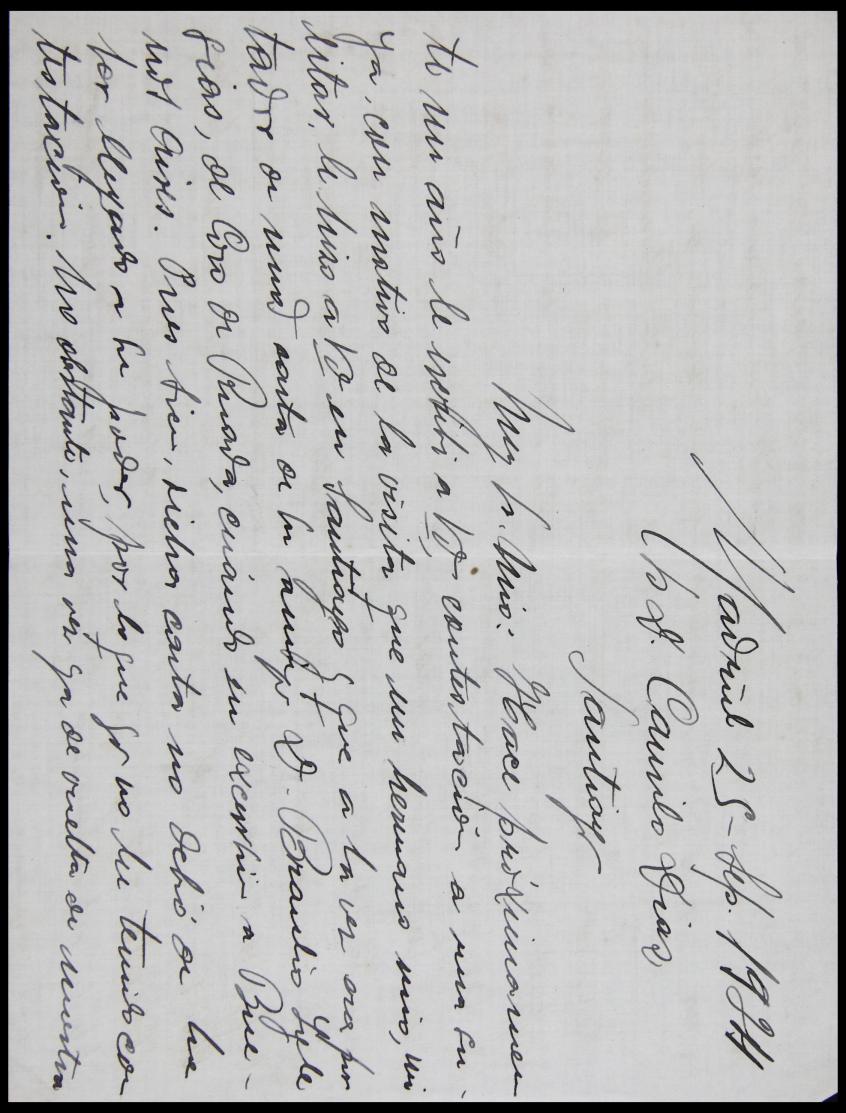 Madrid 25-Sep. 1934
Sr. D. Camilo Diaz
Santiago
Muy Sr. mio: Hace próximamen
te un año le escribí a Vd. contestación a una su-
ya con motivo de la visita que un hermano mio,
le hizo a Vd. en Santiago y que a la vez era por
tador de una carta de su amigo D. Ramiro
de Goro de Rueda, cuando su excursión a Bue-
nos Aires. Pues bien, dicha carta no debió de ha
ber llegado a su poder, por lo que yo no he tenido con
testación. No obstante, una vez ya de vuelta de nuestra